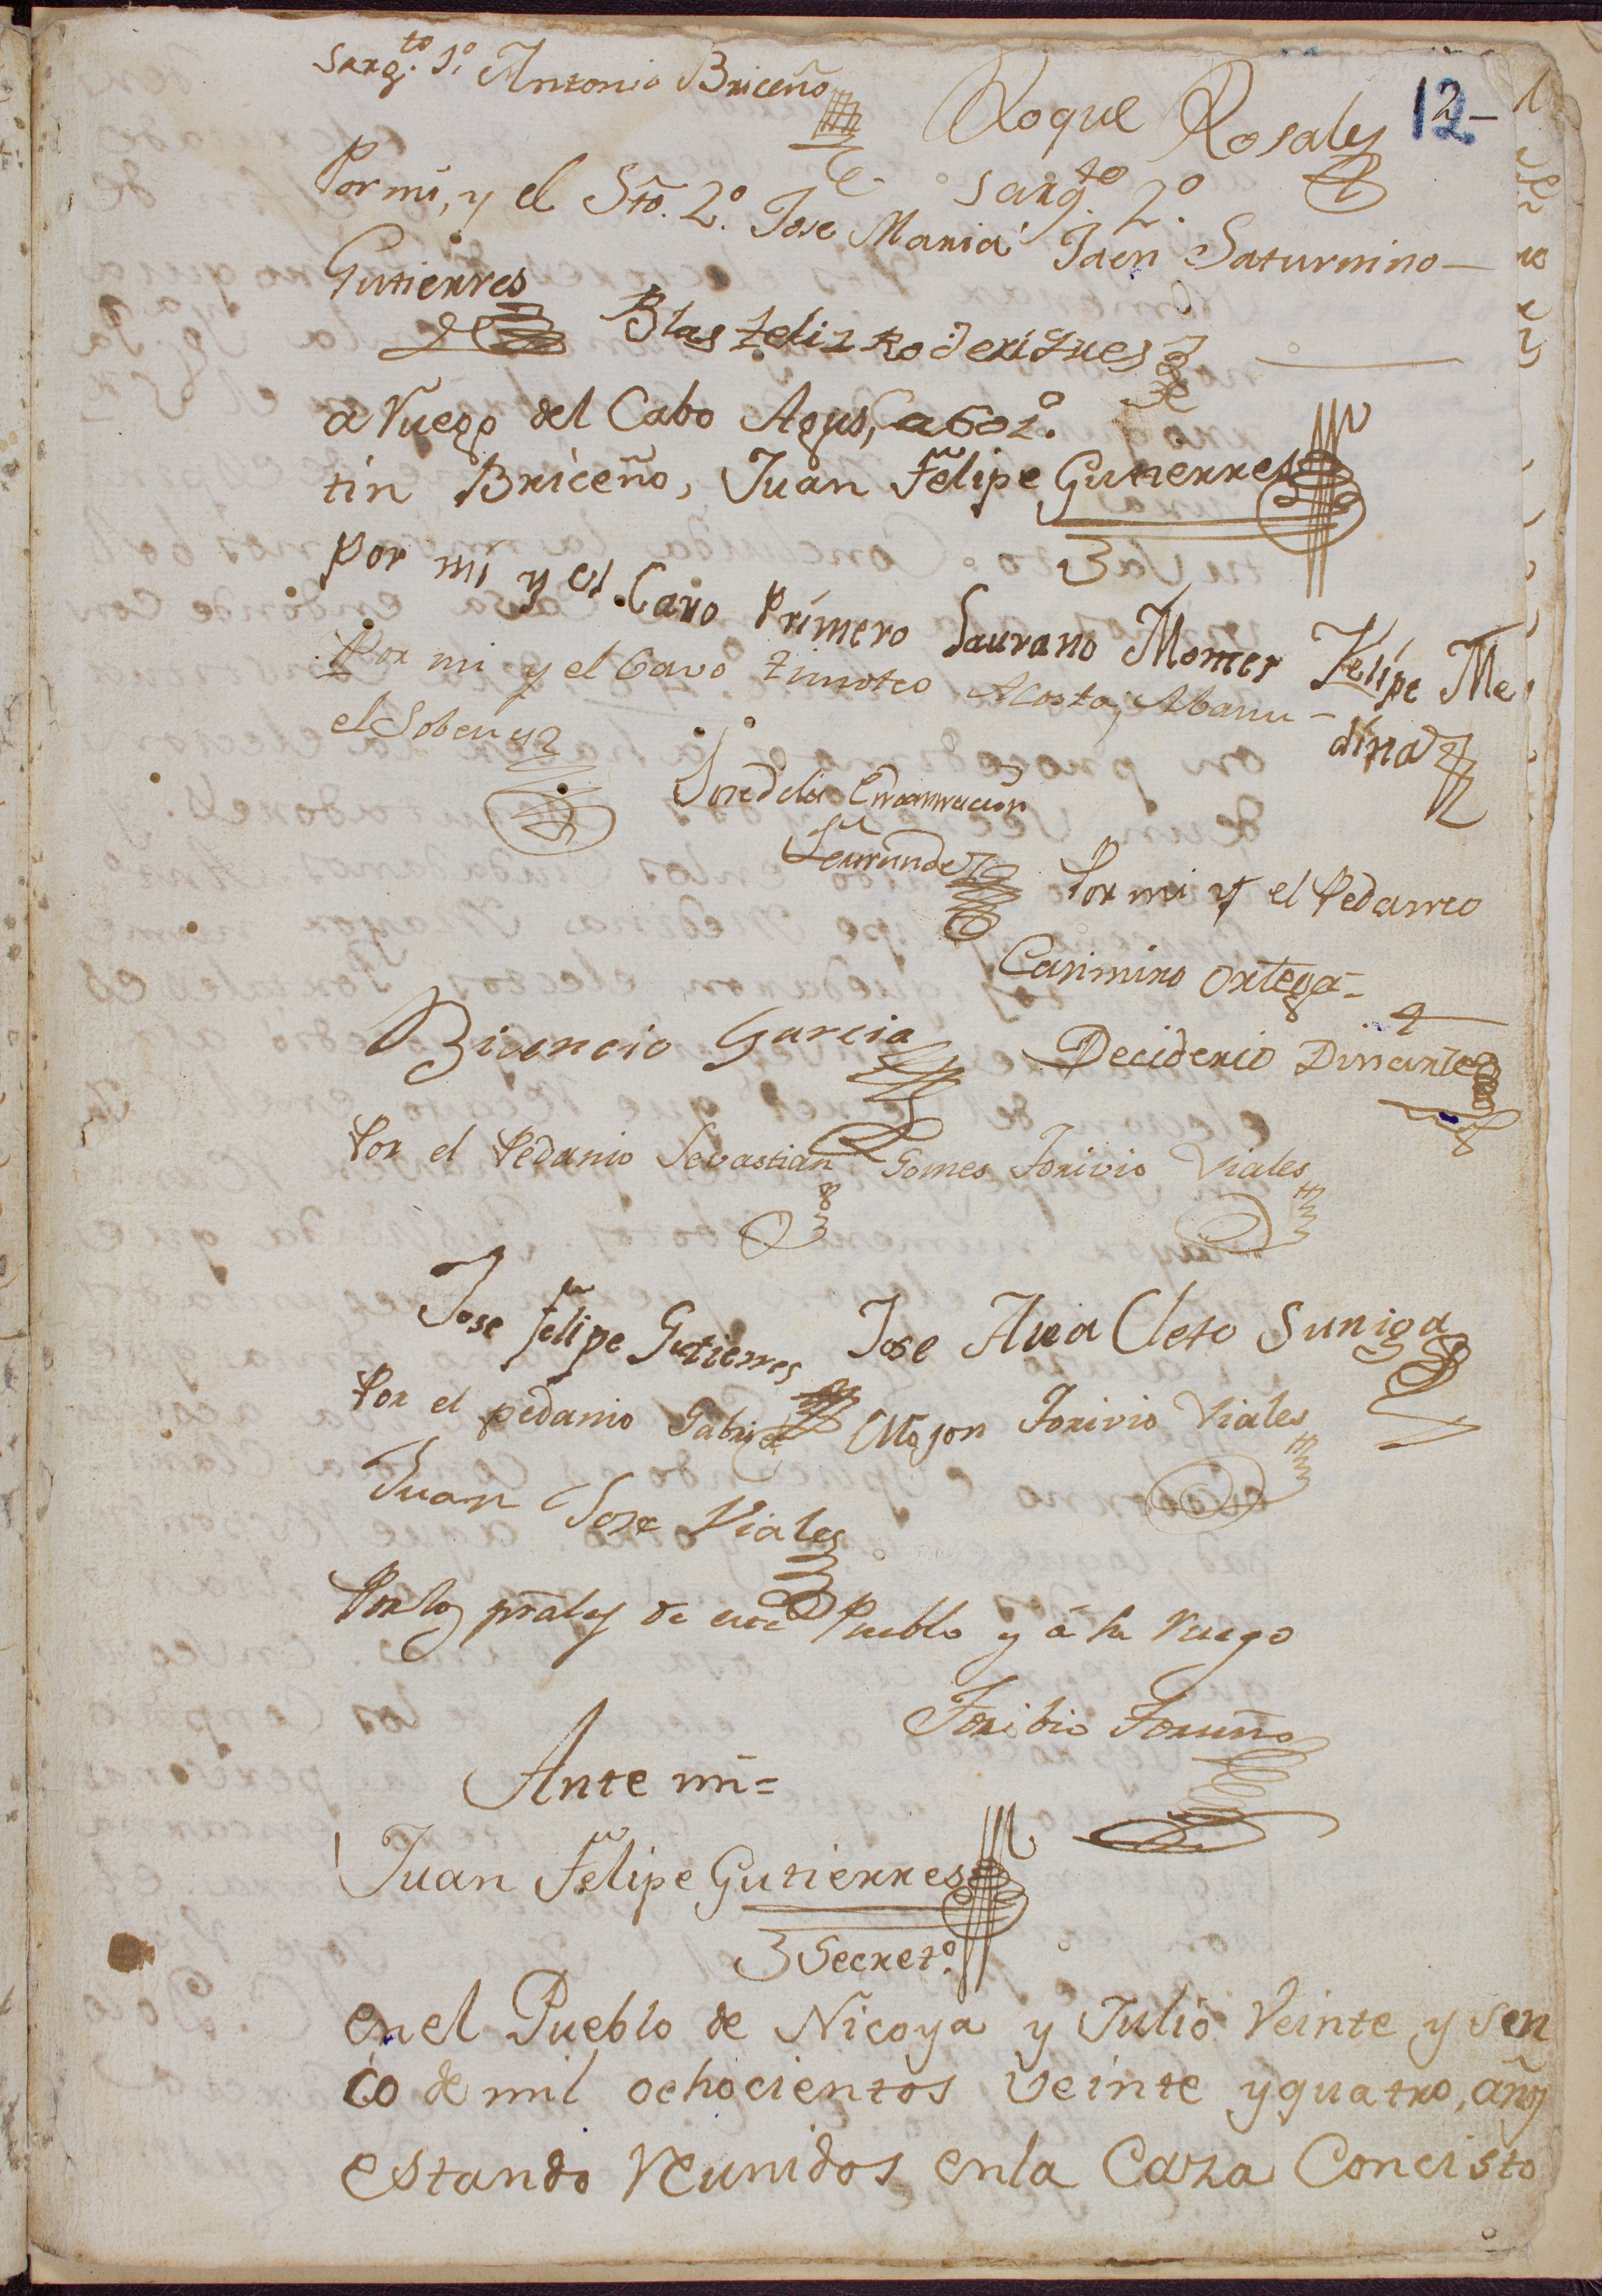 Sarg.to 1.o Antonio Briceño
Roque Rosales 12-
Sarg.to 2.o
Por mi, y el Sto. 2.o Jose Maria Jaen Saturnino
Gutierres
Blas Zeliz Roderigues
a Ruego del Cabo Agus, Cabo 2.o
tin Briceño, Juan Felipe Gutierres
por mi y el Cavo Primero Laurano Momer Felipe Me
dina
Por mi y el Cavo Timoteo Acosta, Abanu-
el Soberuz
Jose dela Encarnacion
Por mi y el Pedaneo
Casimiro Ortega-
Bicencio Garcia
Deciderio Dinarte
Por el Pedanio Sevastian Gomes Torivio Viales
Jose Felipe Gutierres
Jose Ana Cleto Suniga
Por el pedanio Gabriel Mojon Torivio Viales
Juan Jose Viales
Por los prales de este Pueblo y á su Ruego
Toribio Toruño
Ante mi=
Juan Felipe Gutierres
Secret.o
en el Pueblo de Nicoya y Julio Veinte, y sen
co de mil ochocientos veinte y quatro, años
estando Reunidos en la Caza Concisto